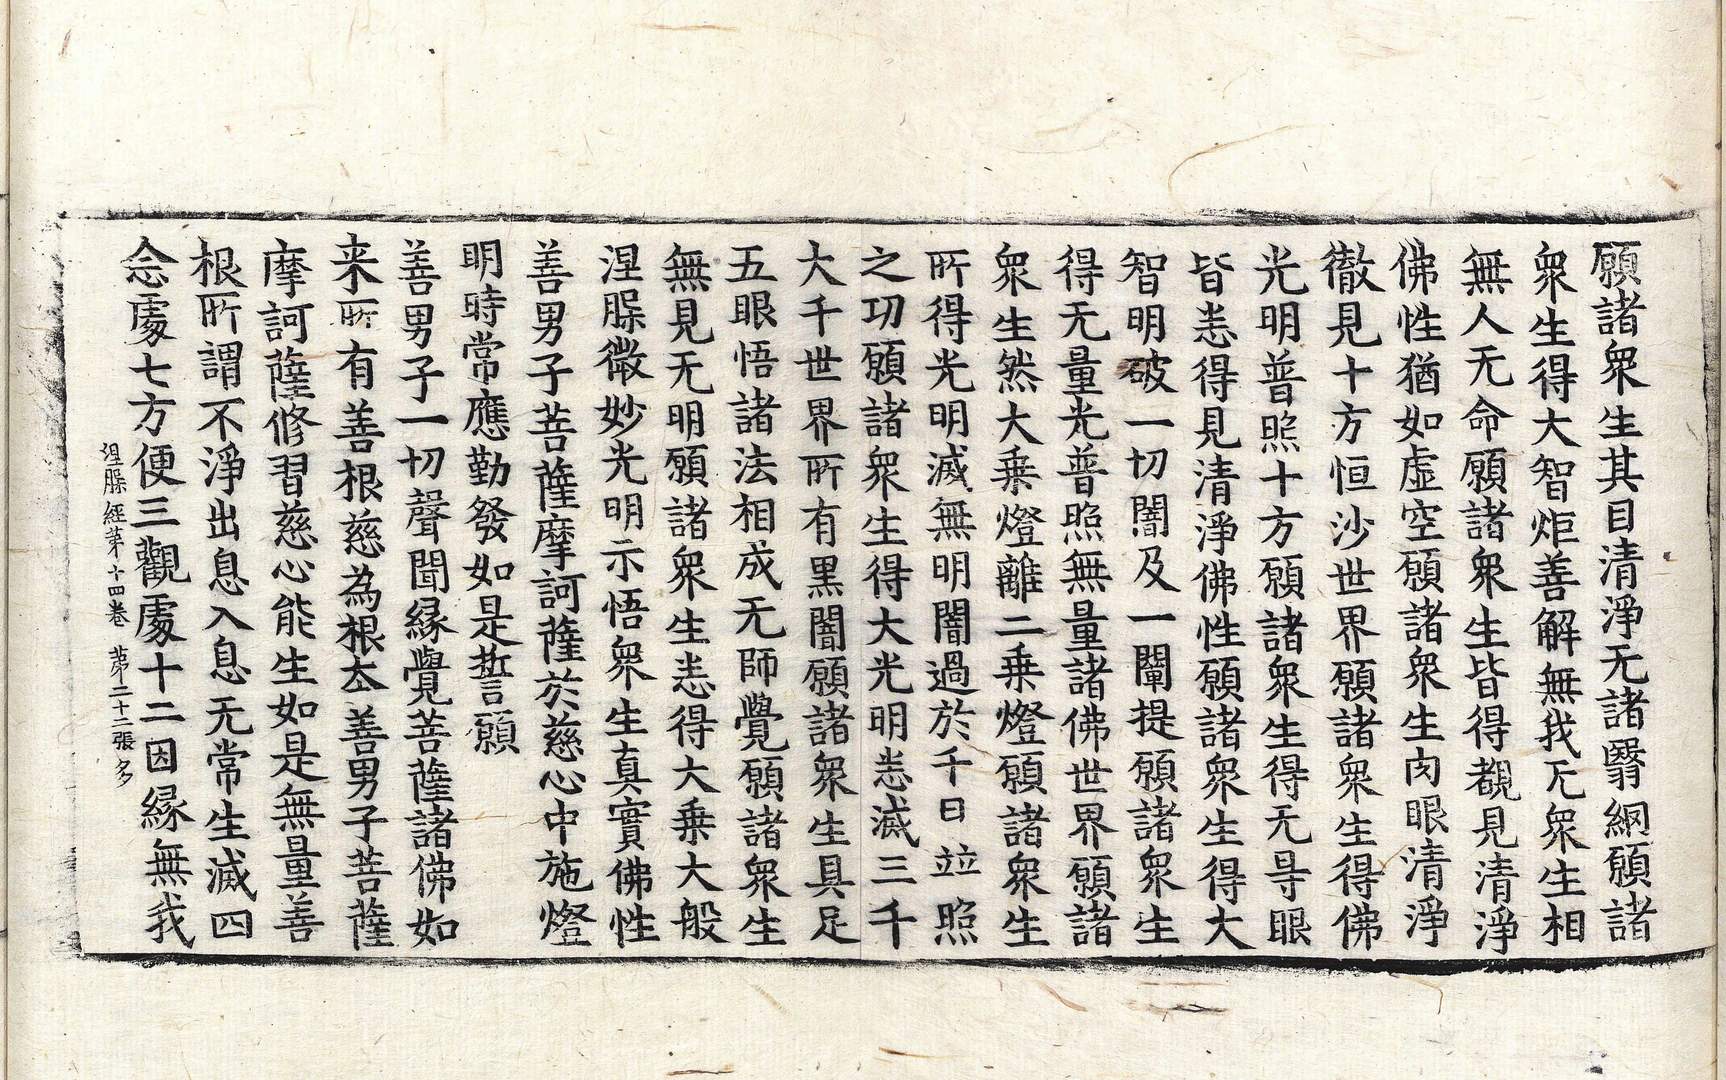 願諸衆生其目清淨无諸翳網願諸
衆生得大智炬善解無我无衆生相
無人无命願諸衆生皆得覩見清淨
佛性猶如虛空願諸衆生肉眼清淨
徹見十方恒沙世界願諸衆生得佛
光明普照十方願諸衆生得无㝵眼
皆悉得見清淨佛性願諸衆生得大
智明破一切闇及一闡提願諸衆生
得无量光普照無量諸佛世界願諸
衆生然大乗燈離二乗燈願諸衆生
所得光明滅無明闇過於千日並照
之功願諸衆生得大光明悉滅三千
大千世界所有黒闇願諸衆生具足
五眼悟諸法相成无師覺願諸衆生
無見无明願諸衆生悉得大乗大般
涅槃微妙光明示悟衆生真實佛性
善男子菩薩摩訶薩於慈心中施燈
明時常應勤發如是誓願
善男子一切聲聞縁覺菩薩諸佛如
来所有善根慈為根本善男子菩薩
摩訶薩修習慈心能生如是無量善
根所謂不淨出息入息无常生滅四
念處七方便三觀處十二因縁無我
涅槃經第十四卷 第二十二張 多